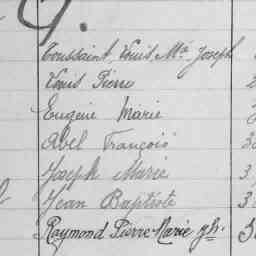 Toussaint, Louis, Mie Joseph
Louis Pierre
Eugène Marie
Abel François
Joseph Marie
Jean Baptiste
Raymond Pierre-Marie